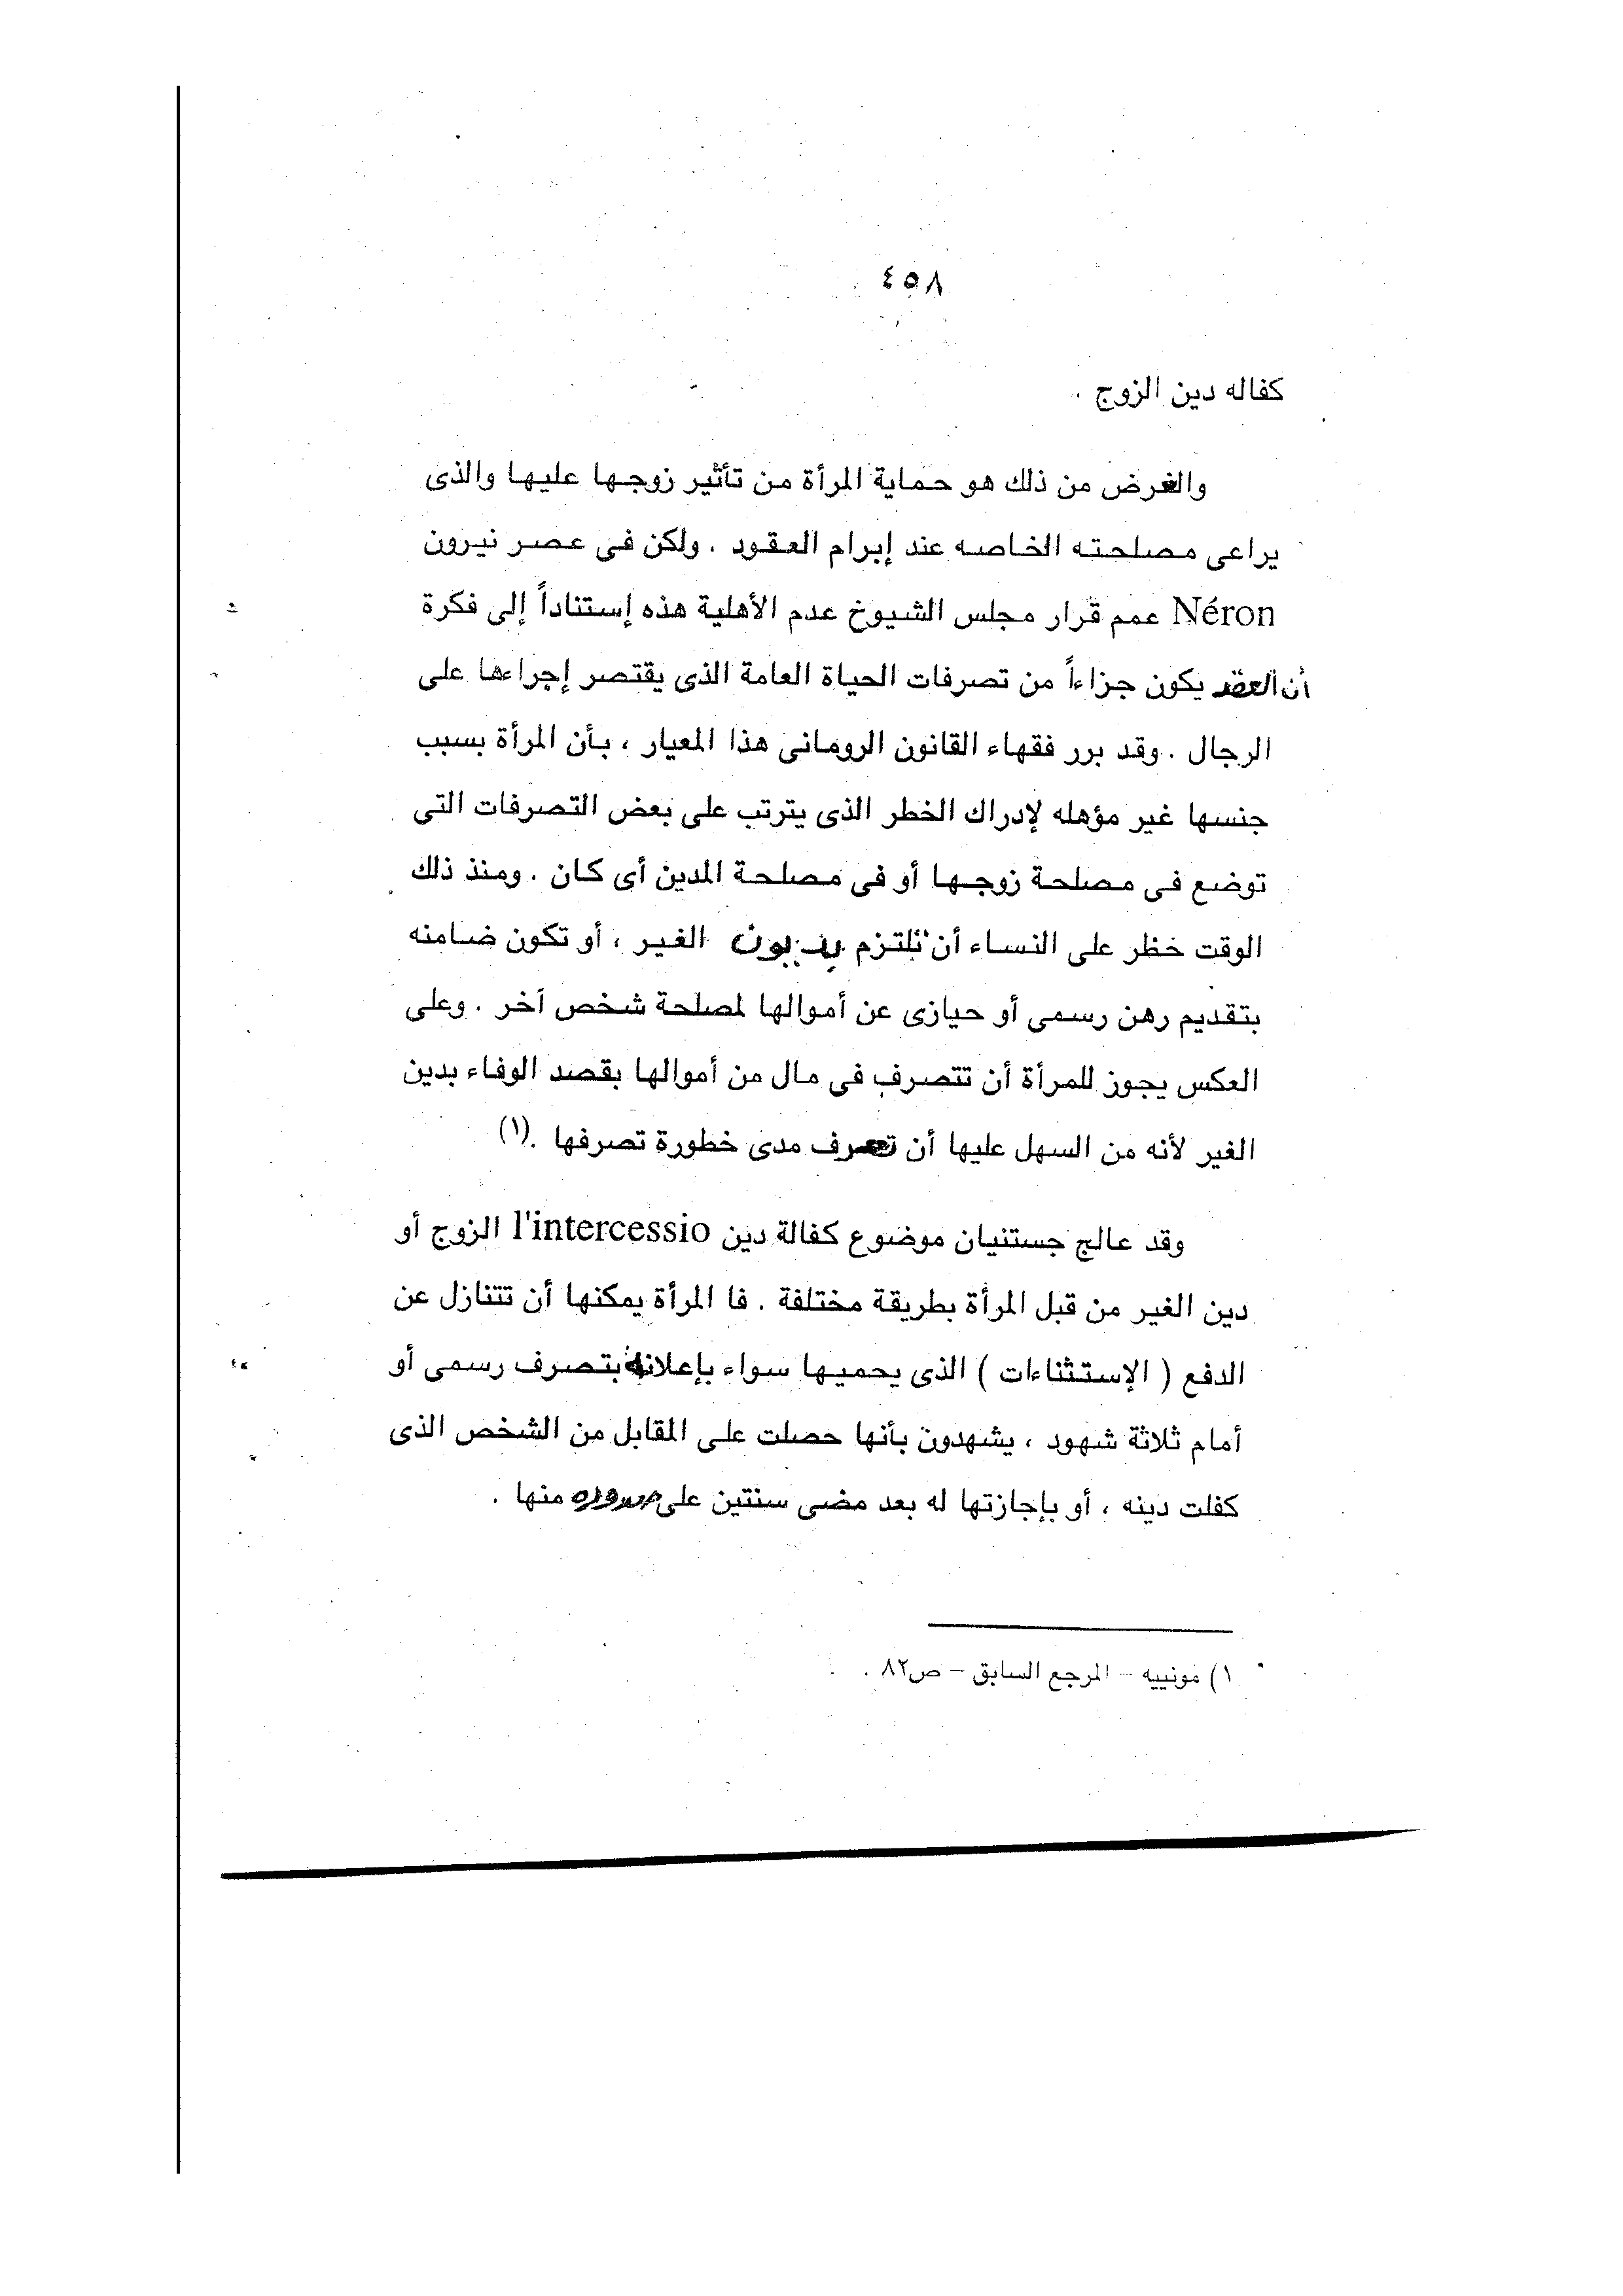 ٤٥٨
كفاله دين الزوج .
والغرض من ذلك هو حماية المرأة من تأثير زوجها عليها والذى
يراعى مصلحته الخاصه عند إبرام العقود . ولكن فى عصر نيرون
Néron عمم قرار مجلس الشيوخ عدم الأهلية هذه إستناداً إلى فكرة
أن العقد يكون جزاءاً من تصرفات الحياة العامة الذى يقتصر إجراءها على
الرجال . وقد برر فقهاء القانون الرومانى هذا المعيار ، بأن المرأة بسبب
جنسها غير مؤهله لإدراك الخطر الذى يترتب على بعض التصرفات التى
توضع فى مصلحة زوجها أو فى مصلحة المدين أى كان . ومنذ ذلك
الوقت خظر على النساء أن تلتزم بديون الغير ، أو تكون ضامنه
بتقديم رهن رسمى أو حيازى عن أموالها لمصلحة شخص آخر . وعلى
العكس يجوز للمرأة أن تتصرف فى مال من أموالها بقصد الوفاء بدين
الغير لأنه من السهل عليها أن تعرف مدى خطورة تصرفها .(١)
وقد عالج جستنيان موضوع كفالة دين l'intercessio الزوج أو
دين الغير من قبل المرأة بطريقة مختلفة . فا المرأة يمكنها أن تتنازل عن
الدفع ( الإستثناءات ) الذى يحميها سواء بإعلانه بتصرف رسمى أو
أمام ثلاثة شهود ، يشهدون بأنها حصلت على المقابل من الشخص الذى
كفلت دينه ، أو بإجازتها له بعد مضى سنتين على صدوره منها .
١) مونييه - المرجع السابق - ص٨٢ .